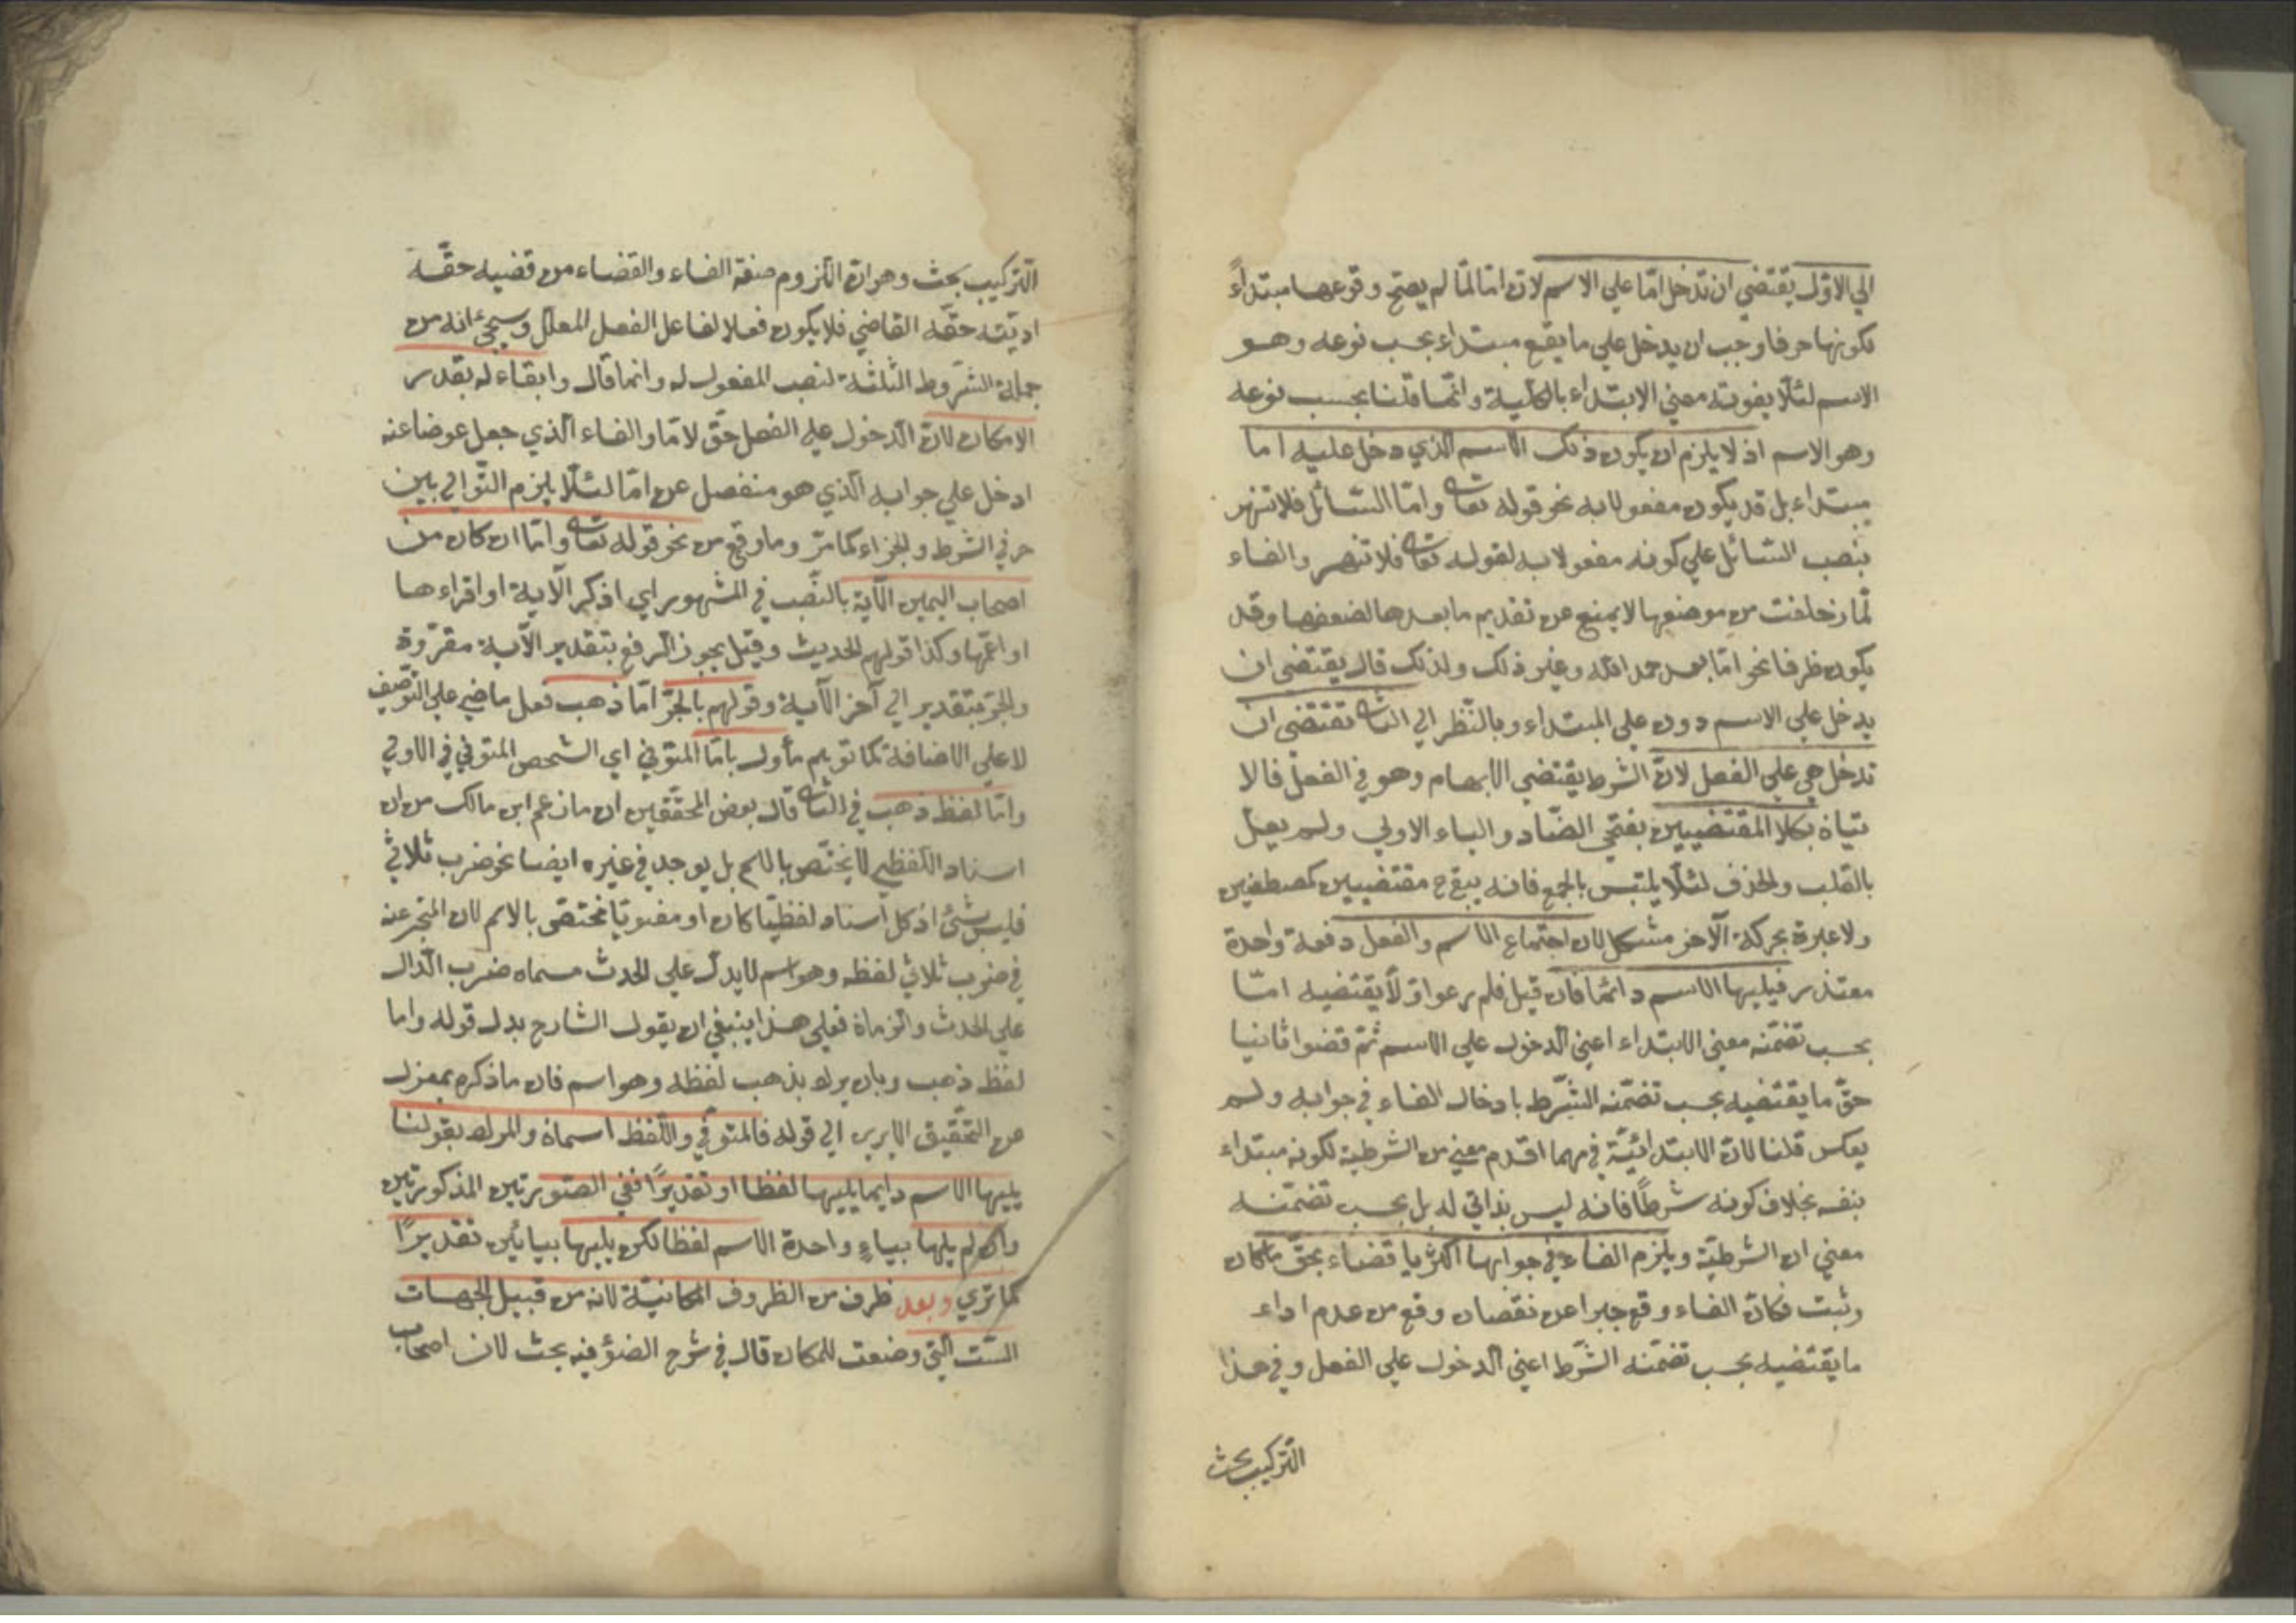 الي الاوّل يقتضي ان تدخل امّا علي الاسم لانّ امّا لمّا لم يصحّ وقوعها مبتداءً
لكونها حرفا وجب ان يدخل علي ما يقع مبتداء بحسب نوعه وهو
الاسم لئلّا يفوته معني الابتداء بالكلّية وانّما قلنا بحسب نوعه
وهو الاسم اذ لا يلزم ان يكون ذلك الاسم الذي دخل عليه اما
مبتداء بل قد يكون مفعولا به نحو قوله تعا وامّا السّائل فلا تنهر
بنصب السّائل علي كونه مفعولا به لقوله تعا فلا تنهر والفاء
لمّا زحلفت من موضعها لا يمنع عن تقديم ما بعدها لضعفها وقد
يكون ظرفا نحو امّا بعد حمد الله وغير ذلك ولذلك قال يقتضي ان
يدخل علي الاسم دون علي المبتداء وبالنّظر الي الثا تقتضي ان
تدخل هي علي الفعل لانّ الشرط يقتضي الابهام وهو في الفعل فالا
تيان بكلا المقتضيين بفتحي الضّاد والياء الاولي ولم يعلّ
بالقلب والحذف لئلّا يلتبس بالجمع فانه يبقي ح مقتضيين كمصطفين
ولا عبرة بحركة الآخر مشكل لان اجتماع الاسم والفعل دفعة واحدة
معتذر فيليها الاسم دائما فان قيل فلم رعوا اوّلا يقتضيه امّا
بحسب تضمّنه معني الابتداء اعني الدّخول علي الاسم ثمّ قضوا ثانيا
حقّ ما يقتضيه بحسب تضمّنه الشّرط بادخال الفاء في جوابه ولم
يعكس قلنا لانّ الابتدائيّة في مهما اقدم معني من الشرطية لكونه مبتداء
بنفسه بخلاف كونه شرطًا فانه ليس بذاتي له بل بحسب تضمّنه
معني ان الشرطيّة ويلزم الفاء في جوابها اكثريا قضاء بحقّ ما كان
وثبت فكانّ الفاء وقع جبرا عن نقصان وقع من عدم اداء
ما يقتضيه بحسب تضمّنه الشّرط اعني الدّخول علي الفعل وفي هذا
التّركيب بحث
التّركيب بحث وهو انّ اللّزوم صفة الفاء والقضاء من قضيه حقّه
ادّيته حقّه القاضي فلا يكون فعلا لفاعل الفعل المعلّل وسيجئ انه من
جملة الشّروط الثلثة لنصب المفعول له وانما قال وابقاء له بقدر
الامكان لانّ الدّخول علي الفعل حقّ لامّا والفاء الّذي جعل عوضا عنه
ادخل علي جوابه الّذي هو منفصل عن امّا لئلّا يلزم التّوالي بين
حرفي الشرط والجزاء كما مرّ وما وقع من نحو قوله تعا وامّا ان كان من
اصحاب اليمين الآية بالنّصب في المشهور اي اذكر الآية او اقراءها
او اتمّها وكذا قولهم الحديث وقيل يجوز الرّفع بتقدير الآية مقرّوة
والجرّ بتقدير الي آخر الآية وقولهم بالجرّ امّا ذهب فعل ماضي علي التّوصيف
لا علي الاضافة كما توهم مأول بامّا المتوّفي اي الشخص المتوّفي في الاولي
وامّا لفظ ذهب في الثا قال بعض المحقّقين ان ما زعم ابن مالك من ان
اسناد اللّفظي لا يختّص بالاسم بل يوجد في غيره ايضا نحو ضرب ثلاثي
فليس بشئ اذ كل اسناد لفظيّا كان او معنويّا مختصّ بالاسم لان المخبر عنه
في ضرب ثلاثي لفظه وهو اسم لا يدلّ علي الحدث مسماه ضرب الدّال
علي الحدث والزمان فعلي هذا ينبغي ان يقول الشارح بدل قوله واما
لفظ ذهب وبان يراد بذهب لفظه وهو اسم فان ما ذكره بمعزل
عن التّحقيق الا يري الي قوله فالمتوّفي واللّفظ اسمان والمراد بقولنا
يليها الاسم دايما يليها لفظا او تقديرًا ففي الصّورتين المذكورتين
وان لم يلها بياءٍ واحدة الاسم لفظا لكن يليها بيائين تقديرًا
كما تري وبعد ظرف من الظروف المكانيّة لانه من قبيل الجهات
السّت الّتي وضعت للمكان قال في شرح الضوء فيه بحث لان اصحاب